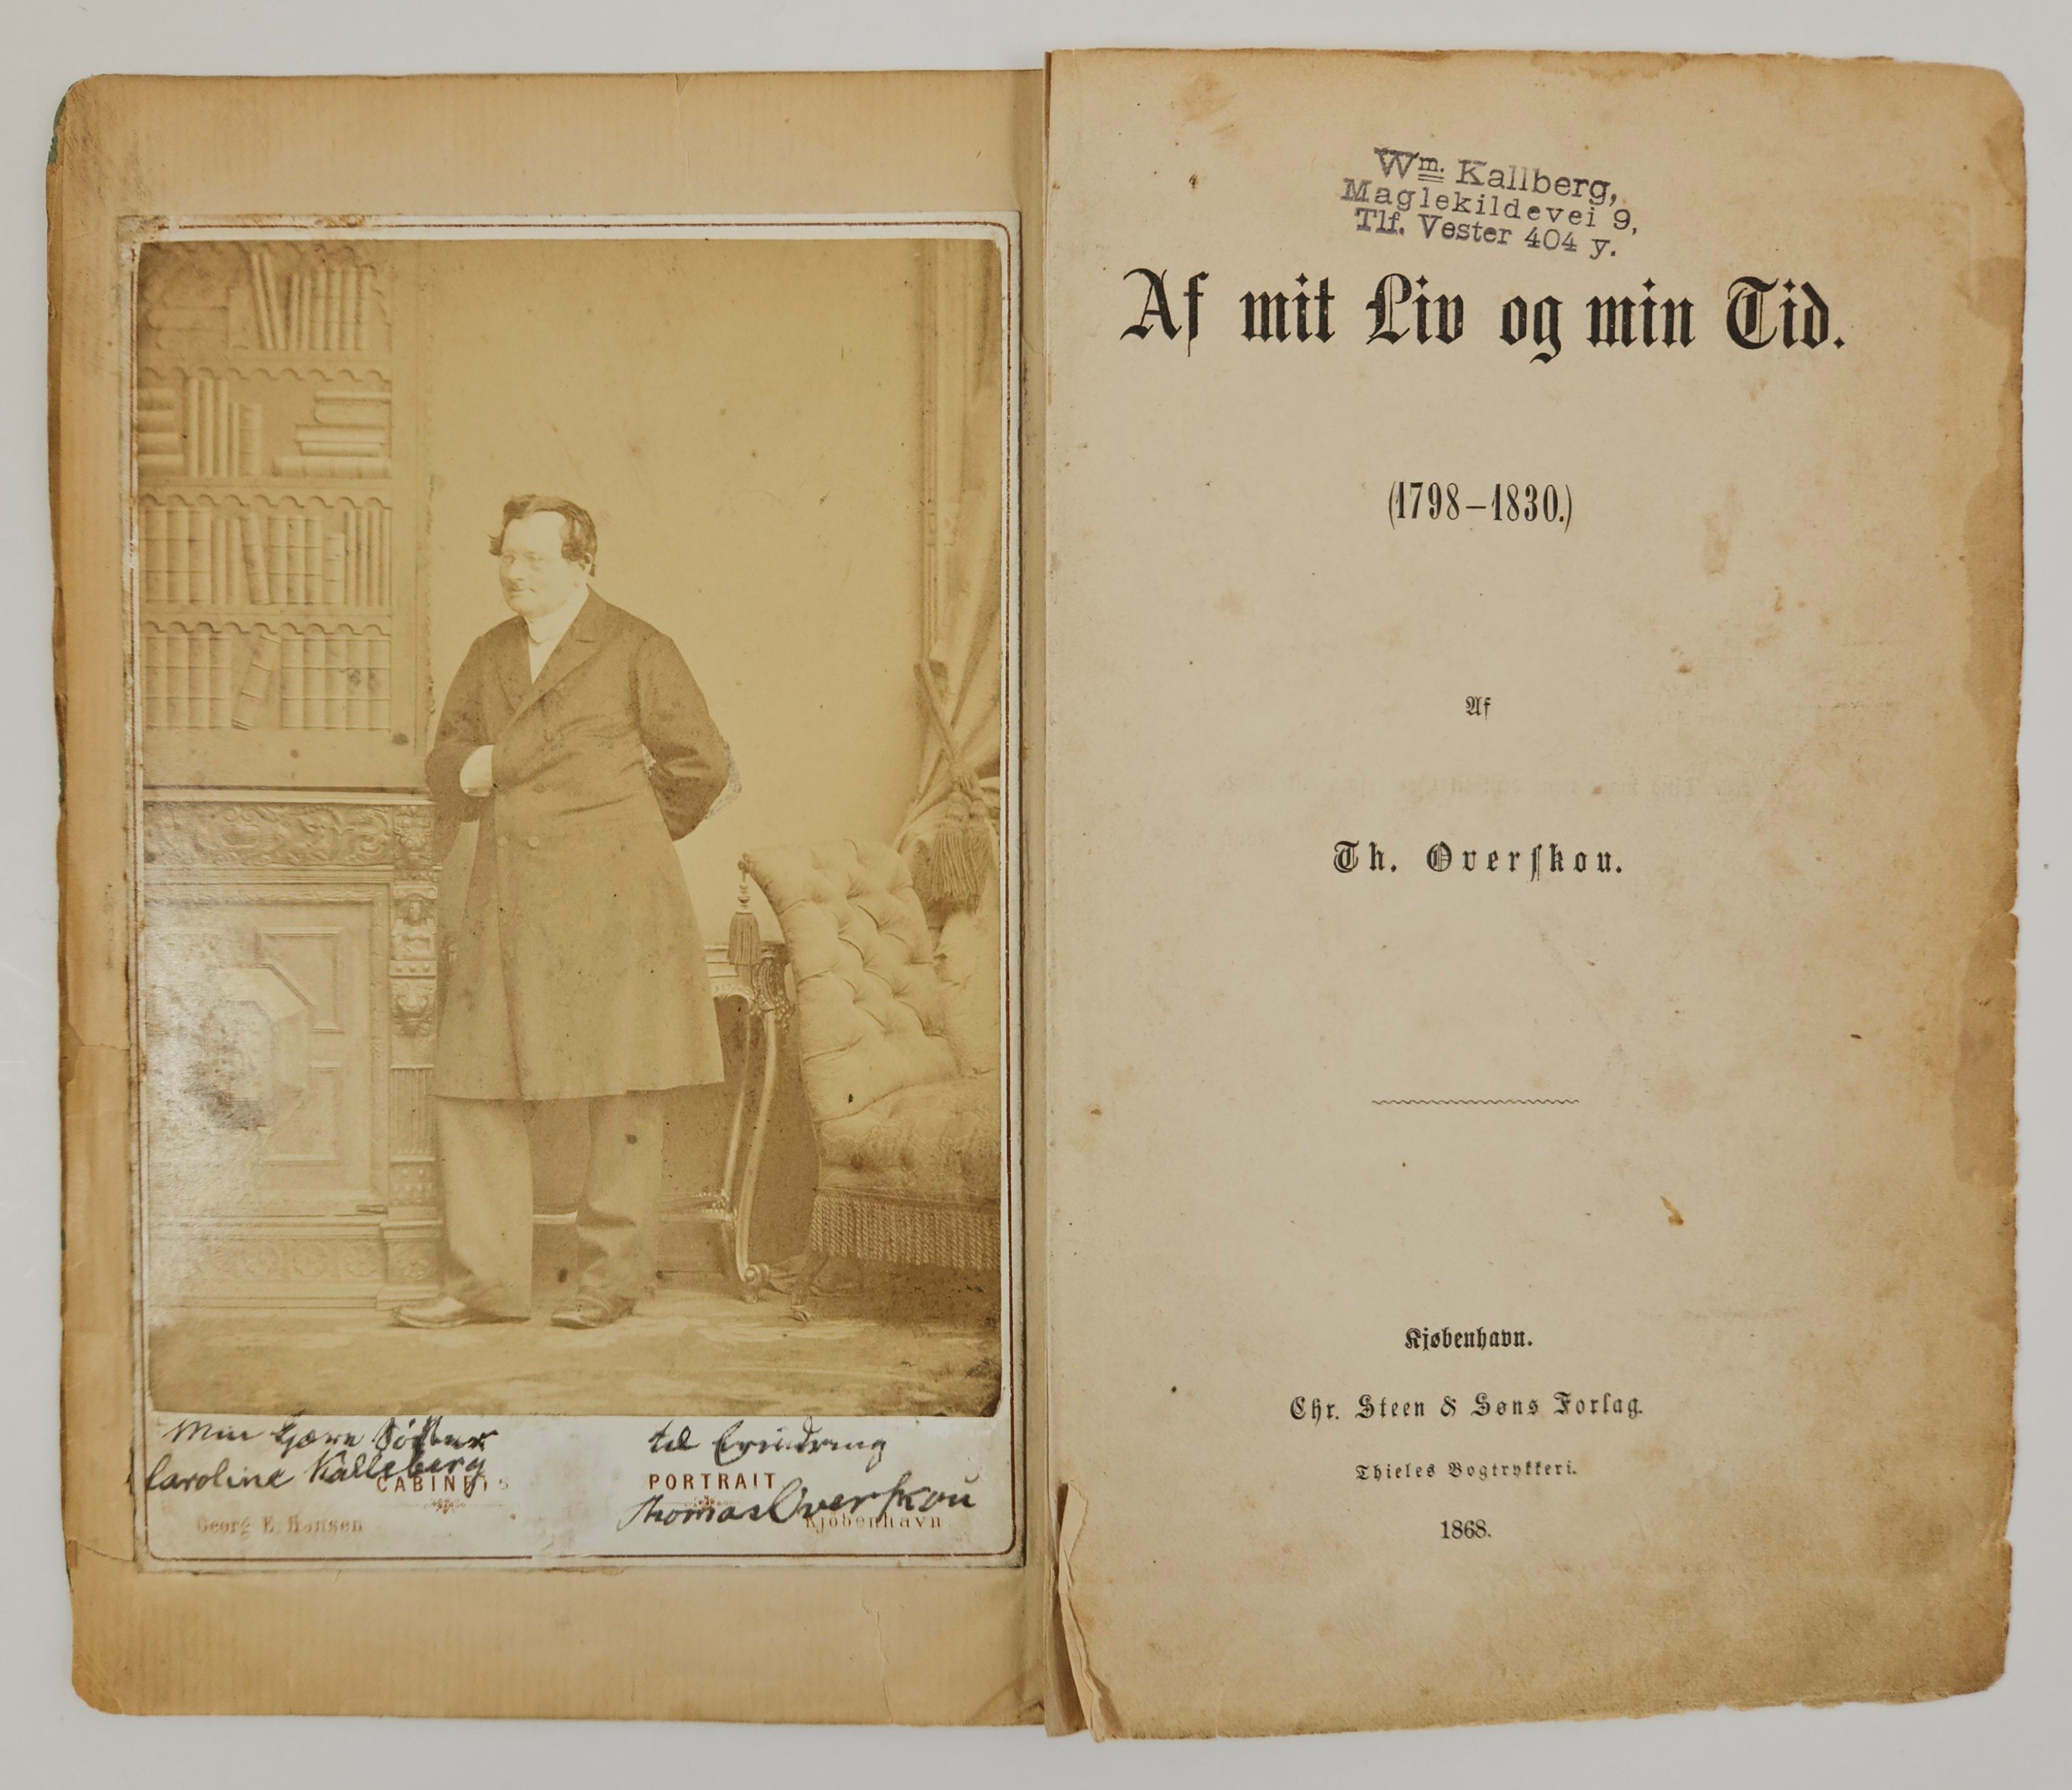 Min kjære Søster
Caroline Kalleberg
til Erindring
Thomas Overskou
CABINETS
PORTRAIT
Georg E. Hansen
Kjøbenhavn
Wm. Kallberg,
Maglekildevei 9,
Tlf. Vester 404 y.
Af mit Liv og min Tid.
(1798–1830.)
Af
Th. Overſkou.
Kjøbenhavn.
Chr. Steen & Søns Forlag.
Thieles Bogtrykkeri.
1868.